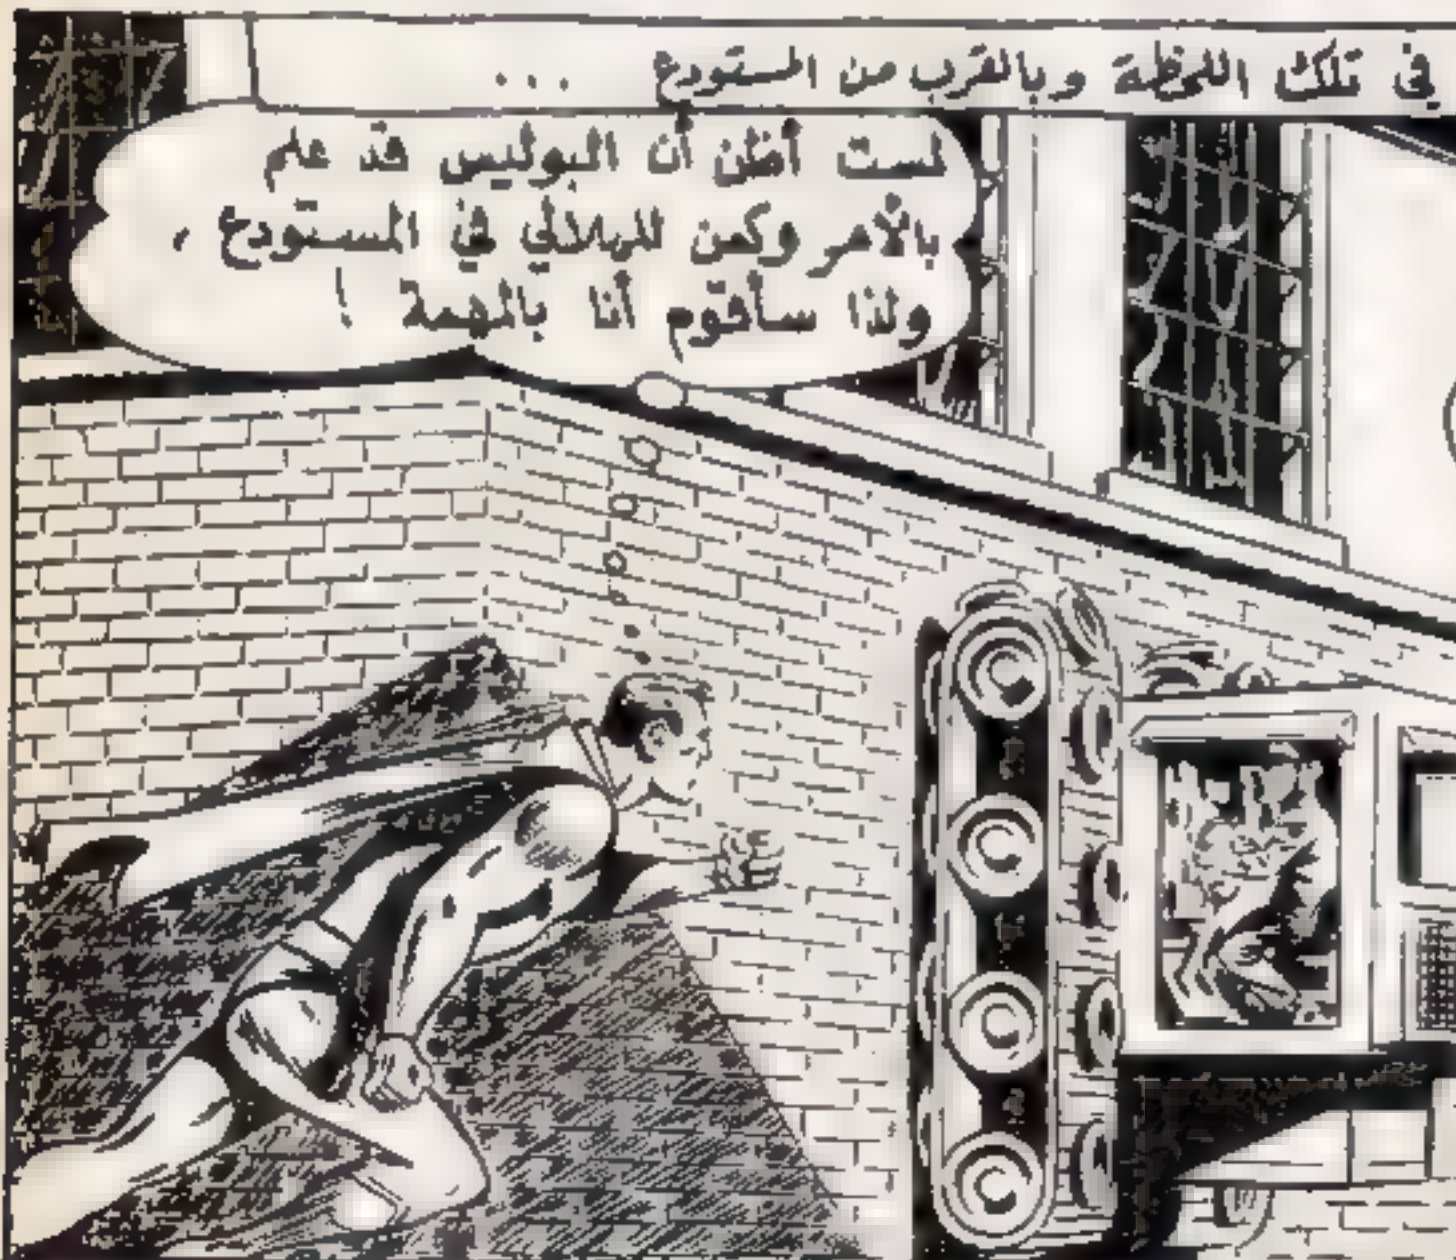 في تلك اللحظة وبالقرب من المستودع ...
لست أظن أن البوليس قد علم
بالأمر وكمن للهلالي في المستودع ،
ولذا سأقوم أنا بالمهمة !